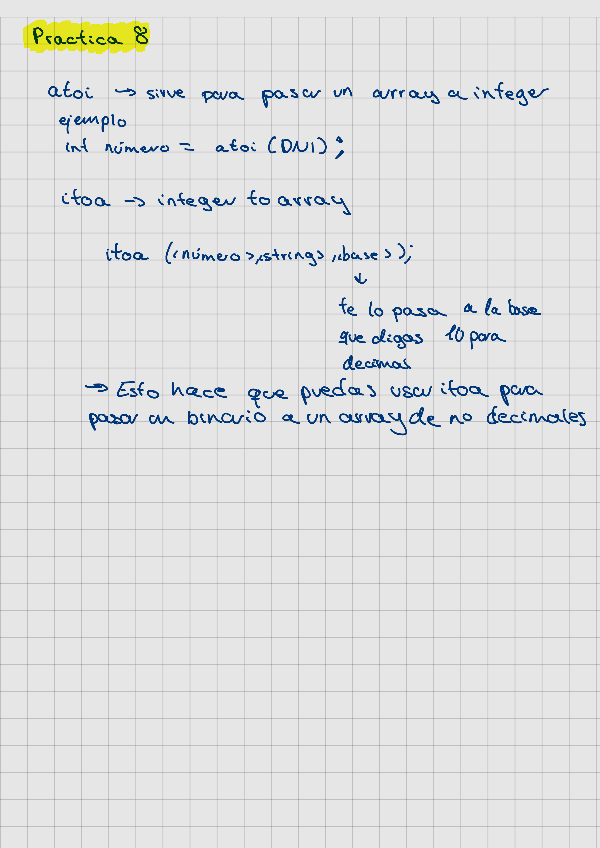 Practica 8
atoi → sirve para pasar un array a integer
ejemplo
int número = atoi (DNI);
itoa → integer to array
itoa (<número>,<string>,<base>);
↓
te lo pasa a la base
que digas 10 para
decimas
→ Esto hace que puedas usar itoa para
pasar un binario a un array de no decimales